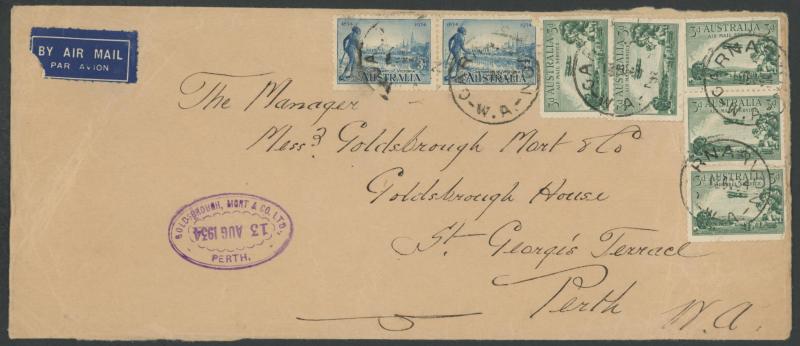 BY AIR MAIL
PAR AVION
1834 1934
AUSTRALIA
1834 1934
AUSTRALIA
3d AUSTRALIA 3d
AIR MAIL SERVICE
3d AUSTRALIA 3d
AIR MAIL SERVICE
3d AUSTRALIA 3d
AIR MAIL SERVICE
3d AUSTRALIA 3d
3d AUSTRALIA 3d
W.A.
The Manager
Messrs Goldsbrough Mort & Co
Goldsbrough House
St. George's Terrace
Perth
W.A.
GOLDSBROUGH, MORT & CO. LTD.
13 AUG 1934
PERTH.